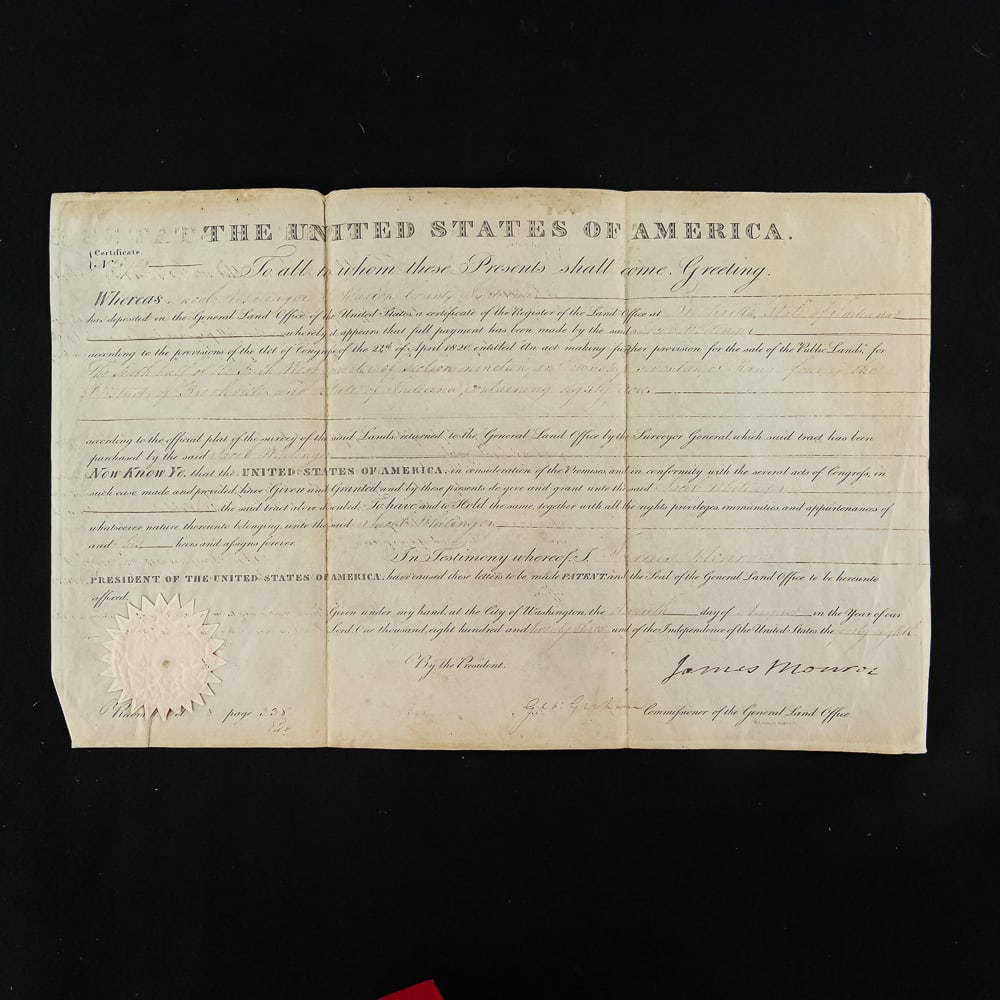 THE UNITED STATES OF AMERICA.
Certificate
No.
To all to whom these Presents shall come, Greeting.
Whereas Jacob of Marion County Indiana
has deposited in the General Land Office of the United States, a certificate of the Register of the Land Office at Brookville, State of Indiana
whereby it appears that full payment has been made by the said
according to the provisions of the Act of Congress of the 24th of April 1820, entitled "An act making further provision for the sale of the Public Lands," for
the South half of the South West quarter of Section nineteen, in Township seventeen, of Range four in the
District of Brookville and State of Indiana, containing eighty acres
according to the official plat of the survey of the said Lands, returned to the General Land Office by the Surveyor General, which said tract has been
purchased by the said Jacob
Now Know Ye, that the UNITED STATES OF AMERICA, in consideration of the Premises, and in conformity with the several acts of Congress, in
such case made and provided, have Given and Granted, and by these presents do give and grant unto the said Jacob
the said tract above described; To have and to Hold the same, together with all the rights, privileges, immunities, and appurtenances of
whatsoever nature, thereunto belonging, unto the said Jacob
and his heirs and assigns forever.
In Testimony whereof, I, James Monroe
PRESIDENT OF THE UNITED STATES OF AMERICA, have caused these letters to be made PATENT, and the Seal of the General Land Office to be hereunto
affixed.
Given under my hand, at the City of Washington, the day of in the Year of our
Lord One thousand, eight hundred and twenty three and of the Independence of the United States the forty eighth
By the President.
James Monroe
Geo: Graham Commissioner of the General Land Office.
page 338